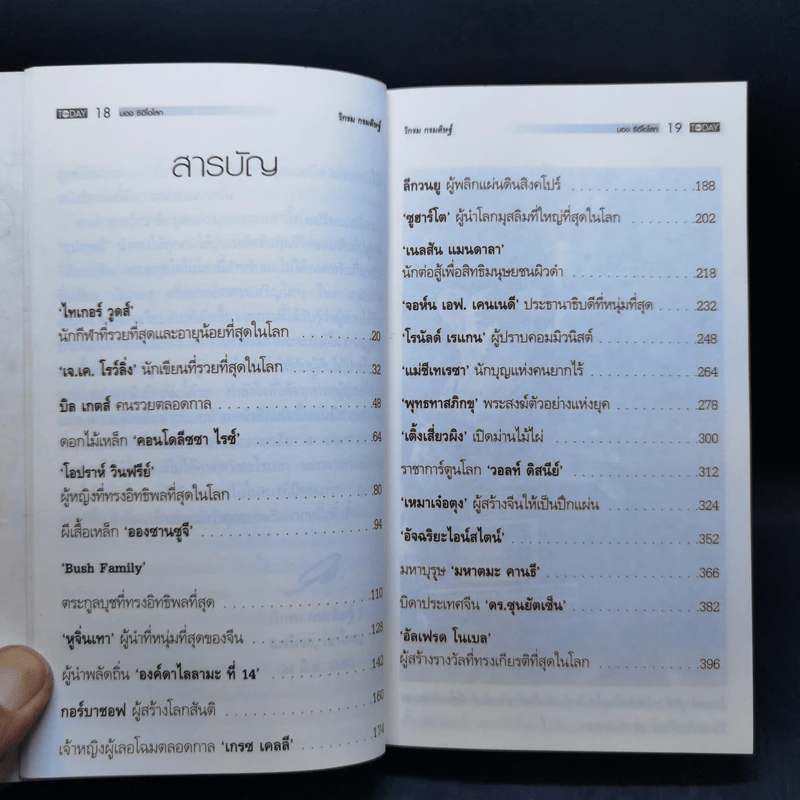 TODAY 18 มอง ซีอีโอโลก
วิกรม กรมดิษฐ์
สารบัญ
'ไทเกอร์ วูดส์'
นักกีฬาที่รวยที่สุดและอายุน้อยที่สุดในโลก . . . . . . . . . . 20
'เจ.เค. โรว์ลิ่ง' นักเขียนที่รวยที่สุดในโลก . . . . . . . . . . 32
บิล เกตส์ คนรวยตลอดกาล . . . . . . . . . . 48
ดอกไม้เหล็ก 'คอนโดลีซซา ไรซ์' . . . . . . . . . . 64
'โอปราห์ วินฟรีย์'
ผู้หญิงที่ทรงอิทธิพลที่สุดในโลก . . . . . . . . . . 80
ผีเสื้อเหล็ก 'อองซานซูจี' . . . . . . . . . . 94
'Bush Family'
ตระกูลบุชที่ทรงอิทธิพลที่สุด . . . . . . . . . . 110
'หูจิ่นเทา' ผู้นำที่หนุ่มที่สุดของจีน . . . . . . . . . . 128
ผู้นำพลัดถิ่น 'องค์ดาไลลามะ ที่ 14' . . . . . . . . . . 142
กอร์บาชอฟ ผู้สร้างโลกสันติ . . . . . . . . . . 160
เจ้าหญิงผู้เลอโฉมตลอดกาล 'เกรซ เคลลี่' . . . . . . . . . . 174
วิกรม กรมดิษฐ์
มอง ซีอีโอโลก 19 TODAY
ลีกวนยู ผู้พลิกแผ่นดินสิงคโปร์ . . . . . . . . . . 188
'ซูฮาร์โต' ผู้นำโลกมุสลิมที่ใหญ่ที่สุดในโลก . . . . . . . . . . 202
'เนลสัน แมนดาลา'
นักต่อสู้เพื่อสิทธิมนุษยชนผิวดำ . . . . . . . . . . 218
'จอห์น เอฟ. เคนเนดี' ประธานาธิบดีที่หนุ่มที่สุด . . . . . . . . . . 232
'โรนัลด์ เรแกน' ผู้ปราบคอมมิวนิสต์ . . . . . . . . . . 248
'แม่ชีเทเรซา' นักบุญแห่งคนยากไร้ . . . . . . . . . . 264
'พุทธทาสภิกขุ' พระสงฆ์ตัวอย่างแห่งยุค . . . . . . . . . . 278
'เติ้งเสี่ยวผิง' เปิดม่านไม้ไผ่ . . . . . . . . . . 300
ราชาการ์ตูนโลก 'วอลท์ ดิสนีย์' . . . . . . . . . . 312
'เหมาเจ๋อตุง' ผู้สร้างจีนให้เป็นปึกแผ่น . . . . . . . . . . 324
'อัจฉริยะไอน์สไตน์' . . . . . . . . . . 352
มหาบุรุษ 'มหาตมะ คานธี' . . . . . . . . . . 366
บิดาประเทศจีน 'ดร.ซุนยัตเซ็น' . . . . . . . . . . 382
'อัลเฟรด โนเบล'
ผู้สร้างรางวัลที่ทรงเกียรติที่สุดในโลก . . . . . . . . . . 396